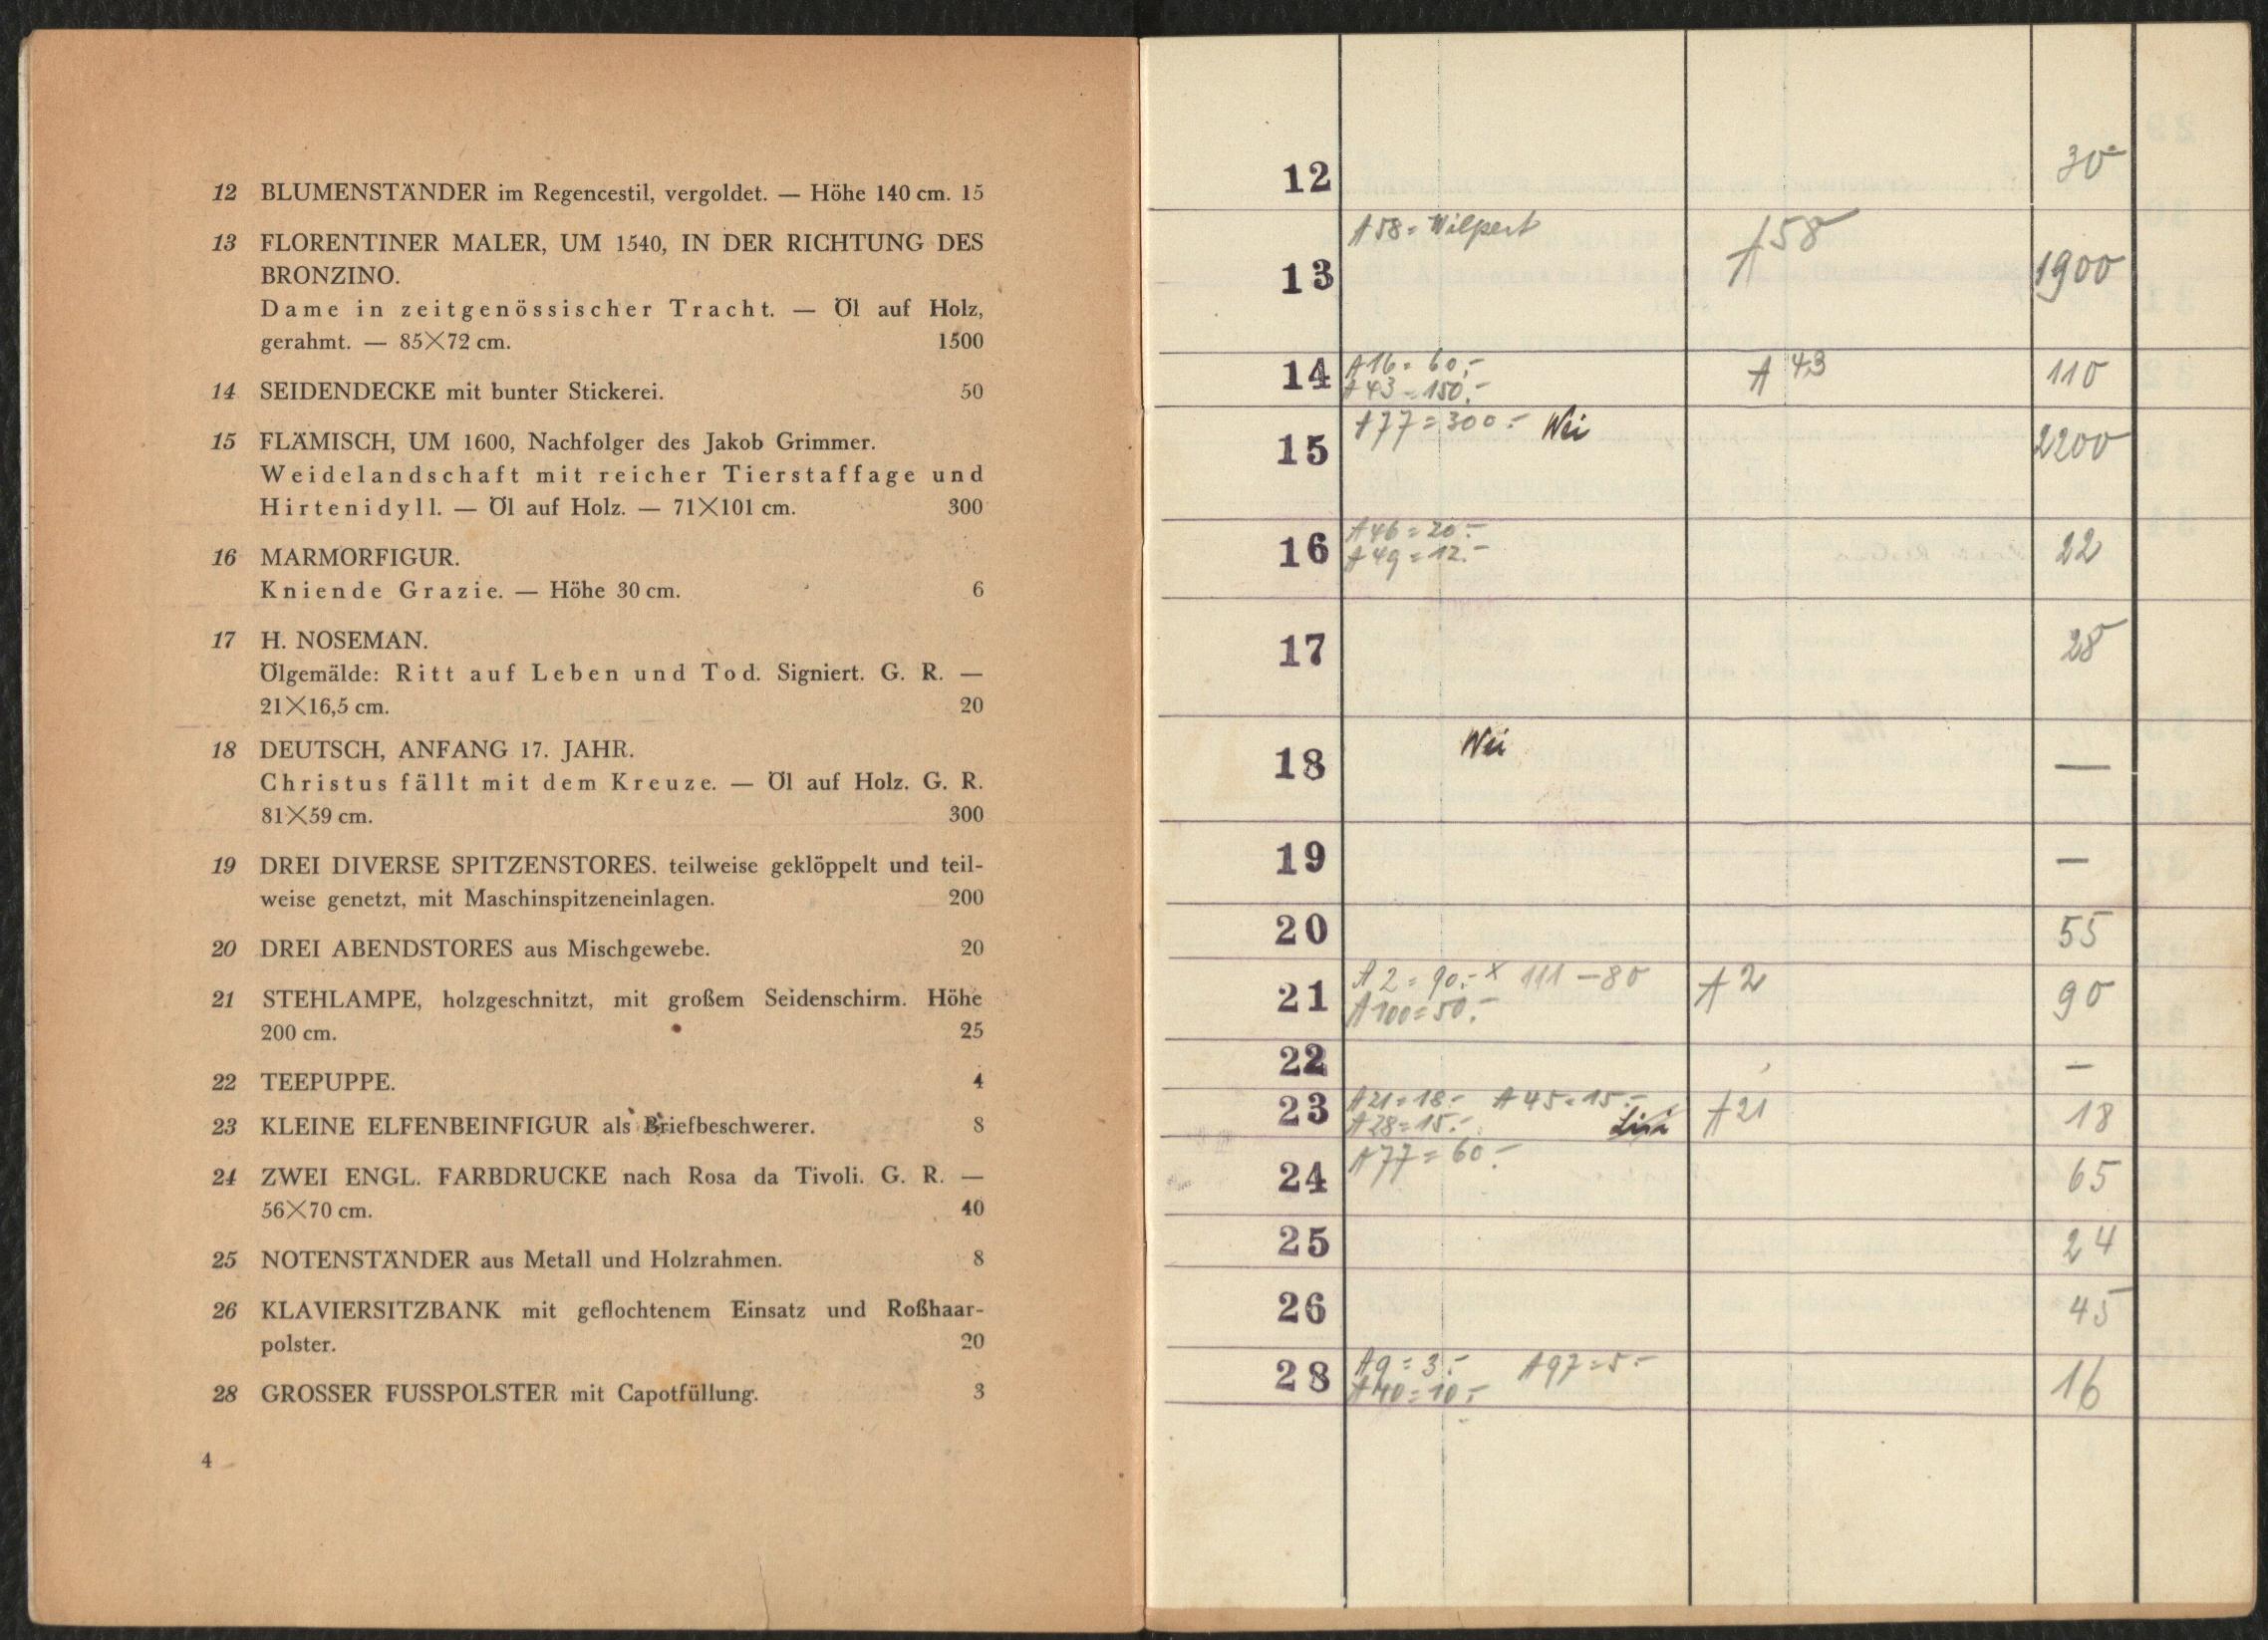 12 BLUMENSTÄNDER im Regencestil, vergoldet. — Höhe 140 cm. 15
13 FLORENTINER MALER, UM 1540, IN DER RICHTUNG DES
BRONZINO.
Dame in zeitgenössischer Tracht. — Öl auf Holz,
gerahmt. — 85×72 cm. 1500
14 SEIDENDECKE mit bunter Stickerei. 50
15 FLÄMISCH, UM 1600, Nachfolger des Jakob Grimmer.
Weidelandschaft mit reicher Tierstaffage und
Hirtenidyll. — Öl auf Holz. — 71×101 cm. 300
16 MARMORFIGUR.
Kniende Grazie. — Höhe 30 cm. 6
17 H. NOSEMAN.
Ölgemälde: Ritt auf Leben und Tod. Signiert. G. R. —
21×16,5 cm. 20
18 DEUTSCH, ANFANG 17. JAHR.
Christus fällt mit dem Kreuze. — Öl auf Holz. G. R.
81×59 cm. 300
19 DREI DIVERSE SPITZENSTORES. teilweise geklöppelt und teil-
weise genetzt, mit Maschinspitzeneinlagen. 200
20 DREI ABENDSTORES aus Mischgewebe. 20
21 STEHLAMPE, holzgeschnitzt, mit großem Seidenschirm. Höhe
200 cm. 25
22 TEEPUPPE. 4
23 KLEINE ELFENBEINFIGUR als Briefbeschwerer. 8
24 ZWEI ENGL. FARBDRUCKE nach Rosa da Tivoli. G. R. —
56×70 cm. 40
25 NOTENSTÄNDER aus Metall und Holzrahmen. 8
26 KLAVIERSITZBANK mit geflochtenem Einsatz und Roßhaar-
polster. 20
28 GROSSER FUSSPOLSTER mit Capotfüllung. 3
4
12 30
A 58 = Wilpert
13 A 58 1900
A 16 = 60.-
14 A 43 = 150.- A 43 110
A 77 = 300.- Wei
15 2200
A 46 = 20.-
16 A 49 = 12.- 22
17 28
Wei
18 —
19 —
20 55
A 2 = 90.- x 111 - 80
21 A 100 = 50.- A 2 90
22 —
A 21 = 18.- A 45 = 15.-
23 A 28 = 15.- A 21 18
A 77 = 60.-
24 65
25 24
26 45
A 9 = 3.- A 97 = 5.-
28 A 40 = 10.- 16